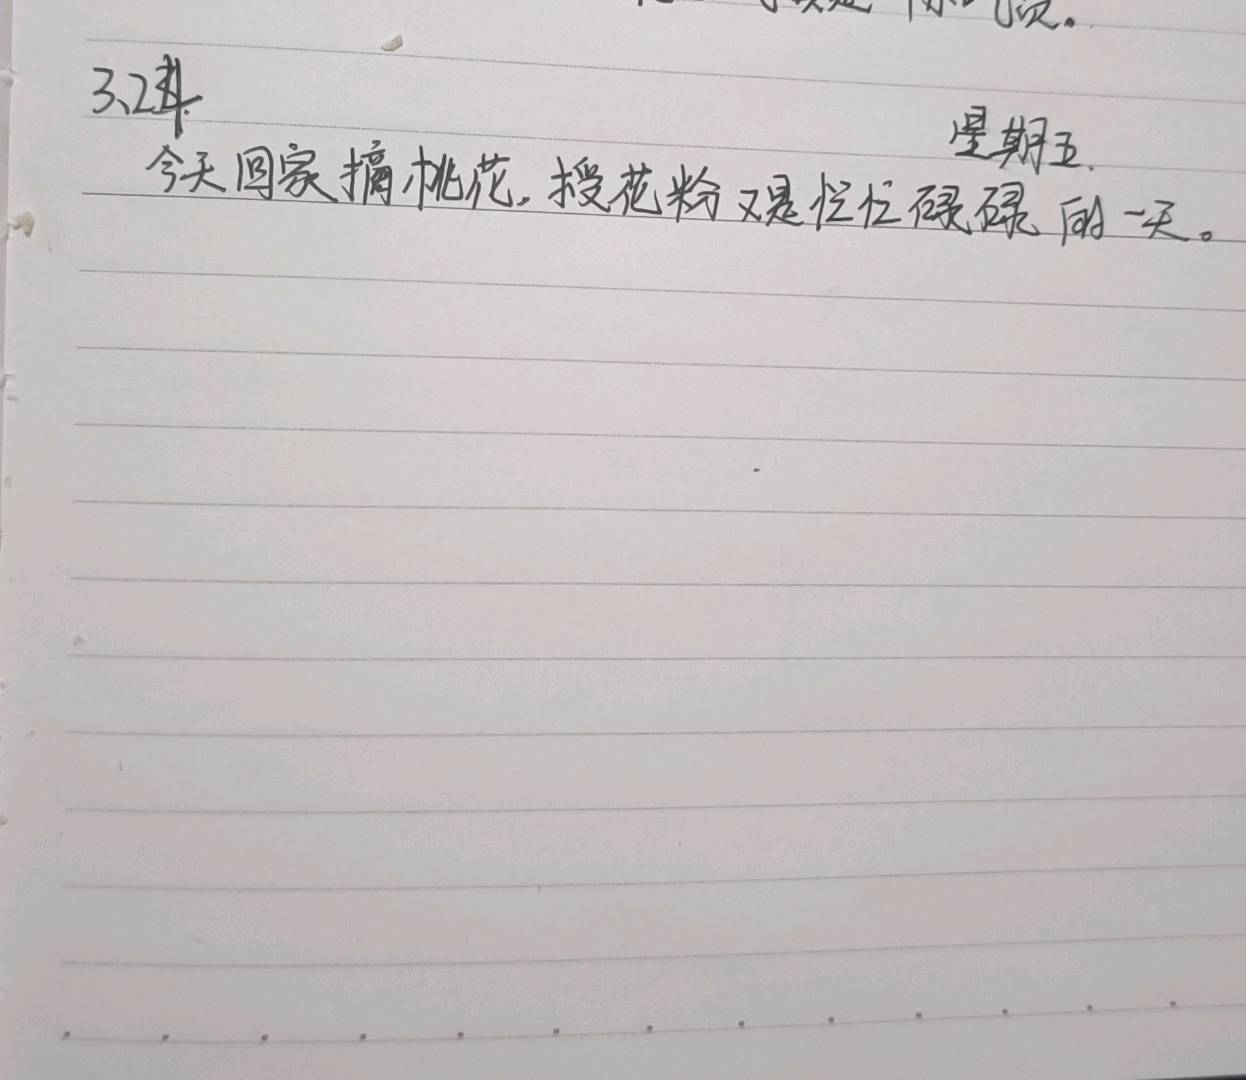 3、24.
星期五.
今天回家摘桃花,授花粉又是忙忙碌碌的一天。